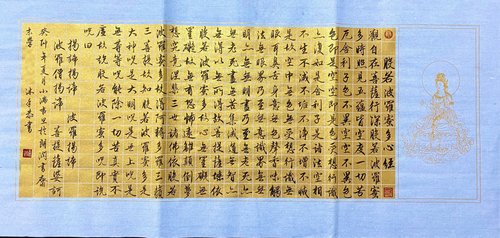 般若波羅蜜多心經
觀自在菩薩行深般若波羅蜜
多時照見五蘊皆空度一切苦
厄舍利子色不異空空不異色
色即是空空即是色受想行識
亦復如是舍利子是諸法空相
不生不滅不垢不淨不增不減
是故空中無色無受想行識無
眼耳鼻舌身意無色聲香味觸
法無眼界乃至無意識界無無
明亦無無明盡乃至無老死亦
無老死盡無苦集滅道無智亦
無得以無所得故菩提薩埵依
般若波羅蜜多故心無罣礙無
罣礙故無有恐怖遠離顛倒夢
想究竟涅槃三世諸佛依般若
波羅蜜多故得阿耨多羅三藐
三菩提故知般若波羅蜜多是
大神咒是大明咒是無上咒是
無等等咒能除一切苦真實不
虛故說般若波羅蜜多咒即說
咒曰
揭諦揭諦 波羅揭諦
波羅僧揭諦 菩提薩婆訶
癸卯年夏月小滿書齋
末學 沐手恭書